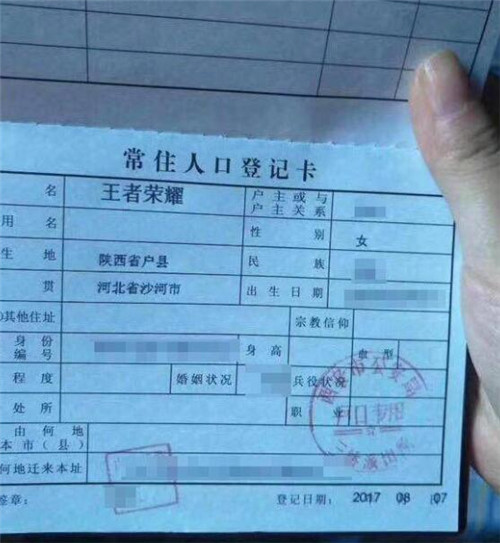 常住人口登记卡
名 王者荣耀 户主或与户主关系
用名 性别 女
生地 陕西省户县 民族
贯 河北省沙河市 出生日期
其他住址 宗教信仰
身份编号 身高 血型
程度 婚姻状况 兵役状况
处所 职业
由何地
本市(县)
何地迁来本址
签章: 登记日期: 2017 08 07